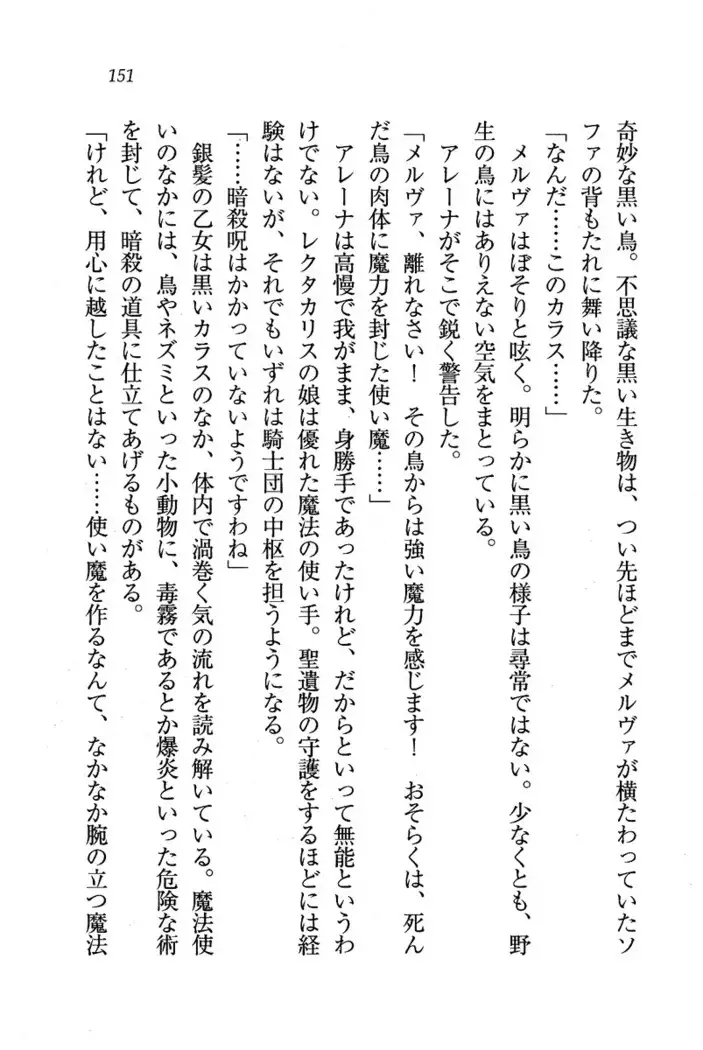 151
奇妙な黒い鳥。不思議な黒い生き物は、つい先ほどまでメルヴァが横たわっていたソ
ファの背もたれに舞い降りた。
「なんだ……このカラス……」
メルヴァはぼそりと呟く。明らかに黒い鳥の様子は尋常ではない。少なくとも、野
生の鳥にはありえない空気をまとっている。
アレーナがそこで鋭く警告した。
「メルヴァ、離れなさい！　その鳥からは強い魔力を感じます！　おそらくは、死ん
だ鳥の肉体に魔力を封じた使い魔……」
アレーナは高慢で我がまま、身勝手であったけれど、だからといって無能というわ
けでない。レクタカリスの娘は優れた魔法の使い手。聖遺物の守護をするほどには経
験はないが、それでもいずれは騎士団の中枢を担うようになる。
「……暗殺呪はかかっていないようですわね」
銀髪の乙女は黒いカラスのなか、体内で渦巻く気の流れを読み解いている。魔法使
いのなかには、鳥やネズミといった小動物に、毒霧であるとか爆炎といった危険な術
を封じて、暗殺の道具に仕立てあげるものがある。
「けれど、用心に越したことはない……使い魔を作るなんて、なかなか腕の立つ魔法